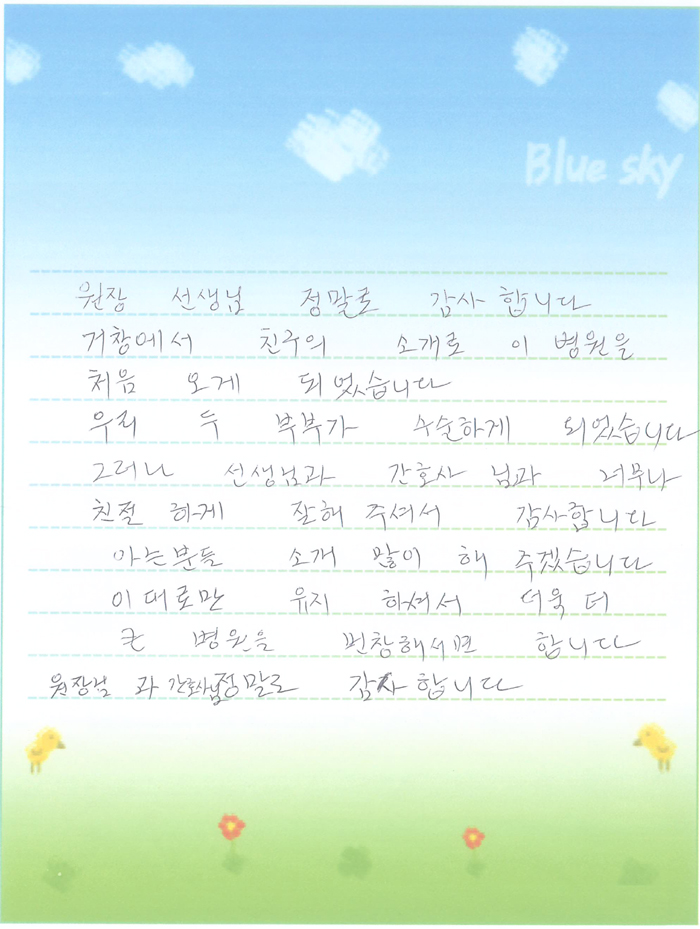 Blue sky
원장 선생님 정말로 감사 합니다
거창에서 친구의 소개로 이 병원을
처음 오게 되었습니다
우리 두 부부가 수순하게 되었습니다
그러나 선생님과 간호사 님과 너무나
친절 하게 잘해 주셔서 감사합니다
아는분들 소개 많이 해 주겠습니다
이대로만 유지 하셔서 더욱 더
큰 병원을 번창해서면 합니다
원장님 과 간호사님정말로 감사 합니다